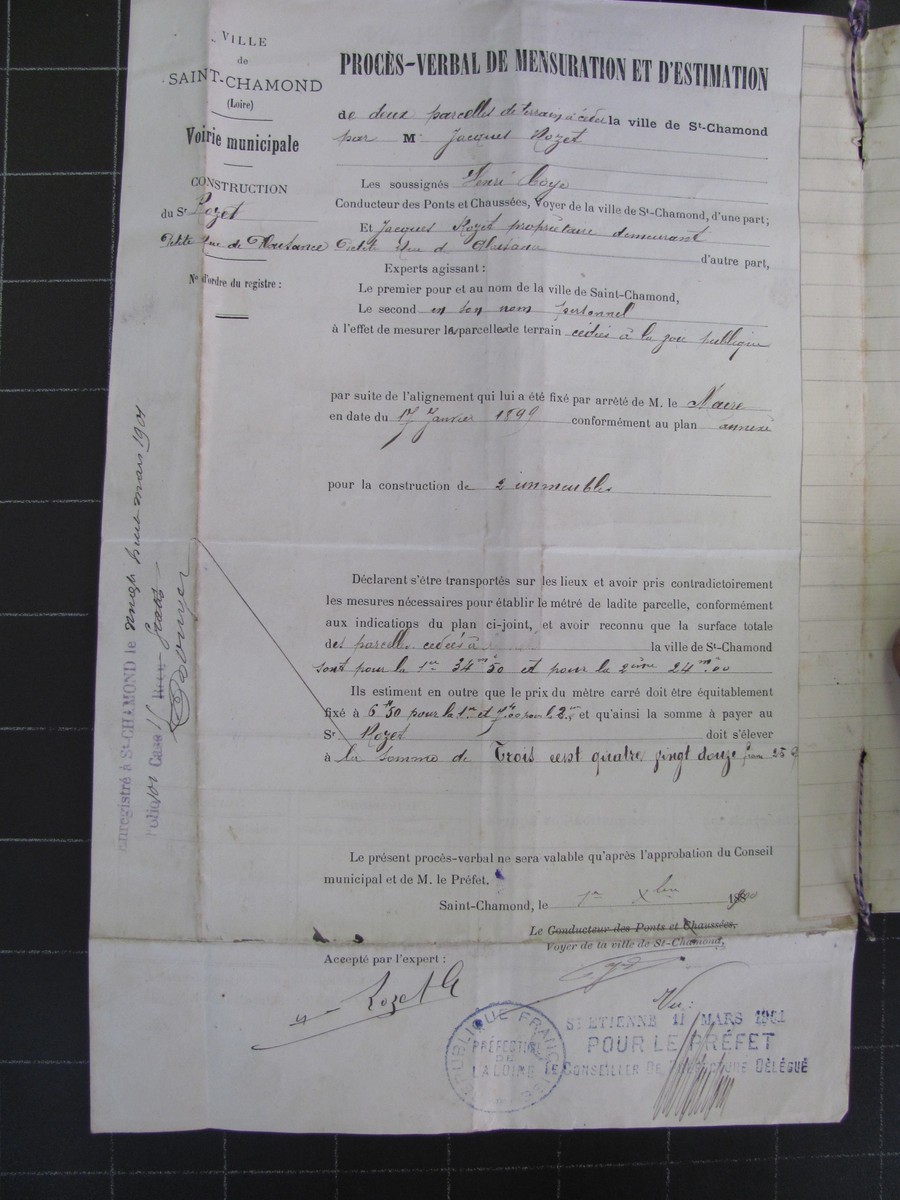 VILLE
de
SAINT-CHAMOND
(Loire)
Voirie municipale
CONSTRUCTION
du Sr Rozet
Petite Rue de Plaisance
No d'ordre du registre :
PROCÈS-VERBAL DE MENSURATION ET D'ESTIMATION
de deux parcelles de terrain à céder la ville de St-Chamond
par M Jacques Rozet
Les soussignés Henri
Conducteur des Ponts et Chaussées, Voyer de la ville de St-Chamond, d'une part;
Et Jacques Rozet propriétaire demeurant
Petite Rue de Plaisance d'autre part,
Experts agissant :
Le premier pour et au nom de la ville de Saint-Chamond,
Le second en son nom personnel
à l'effet de mesurer les parcelles de terrain cédées à la voie publique
par suite de l'alignement qui lui a été fixé par arrêté de M. le Maire
en date du 17 Janvier 1899 conformément au plan annexé
pour la construction de 2 immeubles
Déclarent s'être transportés sur les lieux et avoir pris contradictoirement
les mesures nécessaires pour établir le métré de ladite parcelle, conformément
aux indications du plan ci-joint, et avoir reconnu que la surface totale
des parcelles cédées à la ville de St-Chamond
sont pour la 1re 34m50 et pour la 2ème 24m00
Ils estiment en outre que le prix du mètre carré doit être équitablement
fixé à 6f50 pour la 1re et 7f00 pour la 2e et qu'ainsi la somme à payer au
Sr Rozet doit s'élever
à la somme de Trois cent quatre vingt douze francs 25 c
Le présent procès-verbal ne sera valable qu'après l'approbation du Conseil
municipal et de M. le Préfet.
Saint-Chamond, le 1er Xbre 1900
Le Conducteur des Ponts et Chaussées,
Voyer de la ville de St-Chamond,
Accepté par l'expert :
Rozet
Vu :
ST ETIENNE 11 MARS 1901
POUR LE PRÉFET
LE CONSEILLER DE PRÉFECTURE DÉLÉGUÉ
RÉPUBLIQUE FRANÇAISE
PRÉFECTURE
DE
LA LOIRE
Enregistré à St-CHAMOND le vingt huit mars 1901
Folio 101 Case 11 Gratis